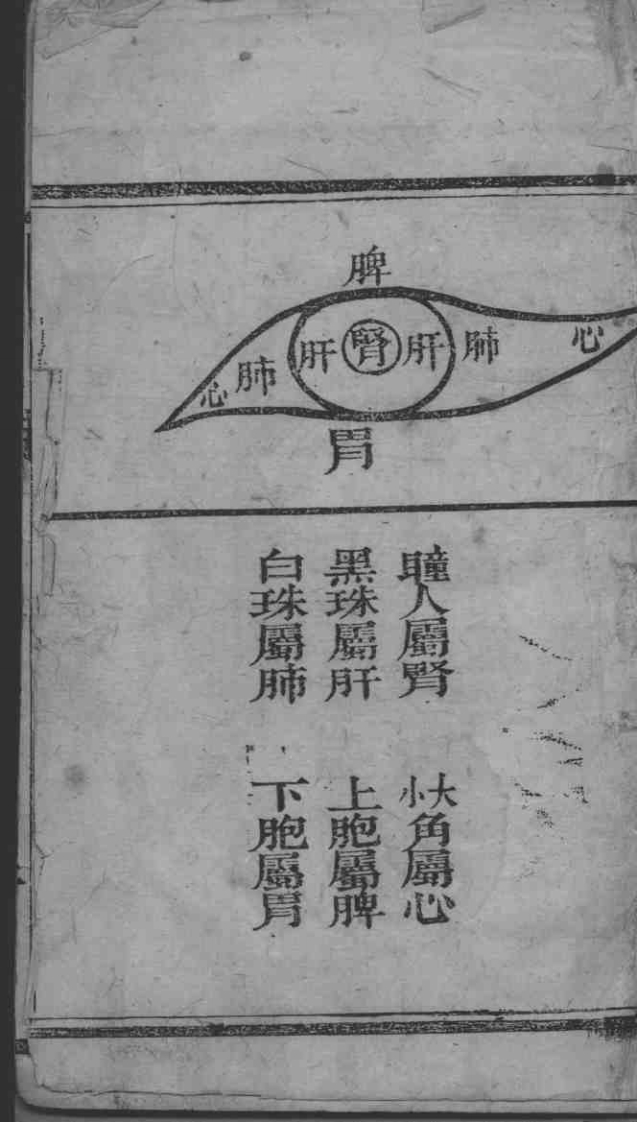 脾
心 肺 肝 腎 肝 肺 心
胃
瞳人屬腎 大小角屬心
黑珠屬肝 上胞屬脾
白珠屬肺 下胞屬胃